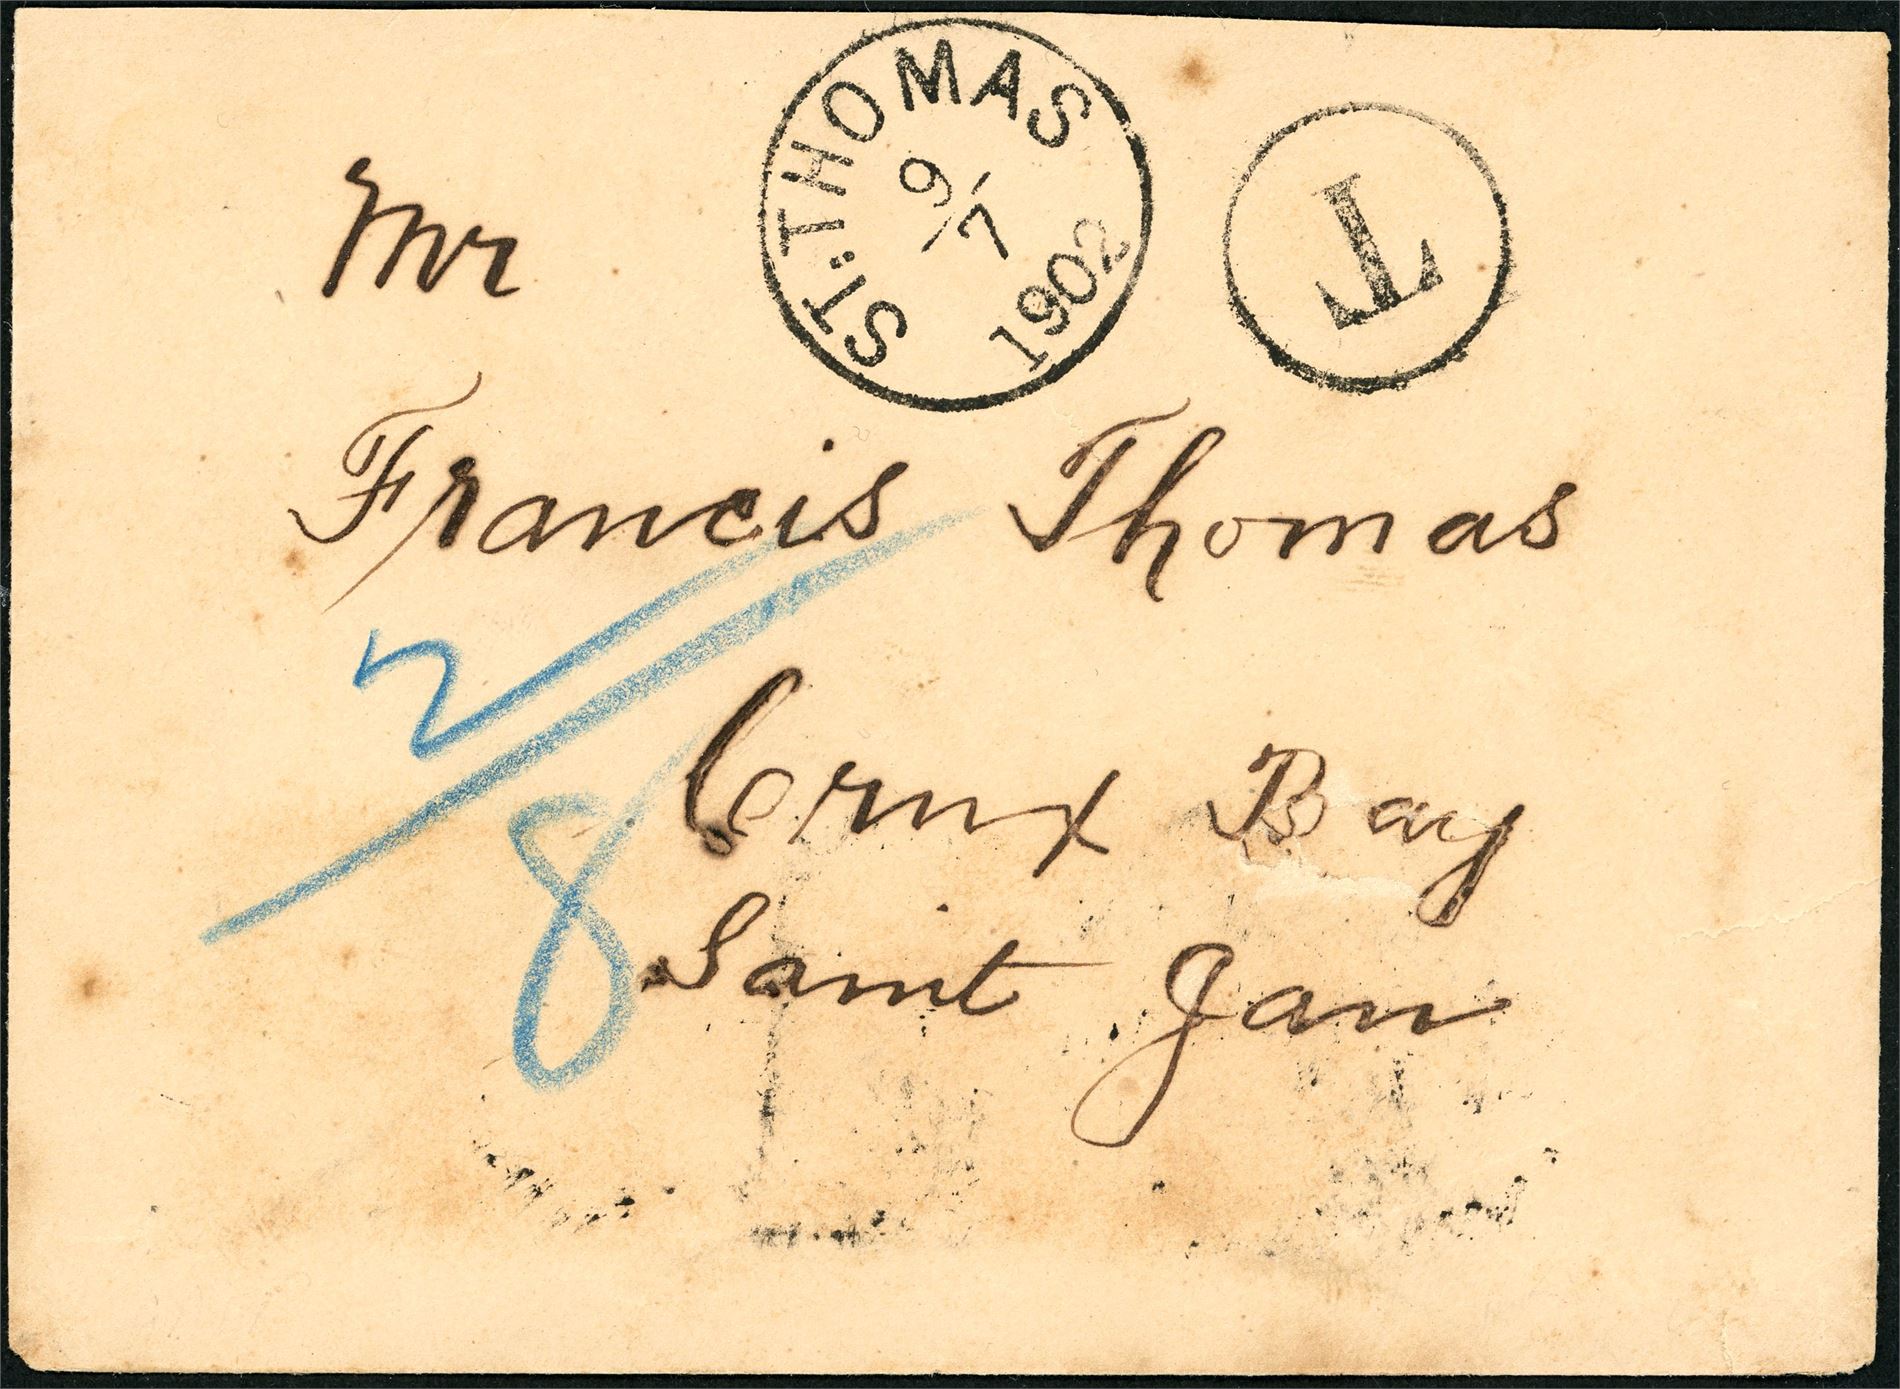 ST: THOMAS
9/7
1902
T
Mr
Francis Thomas
2/8
Crux Bay
Saint Jan